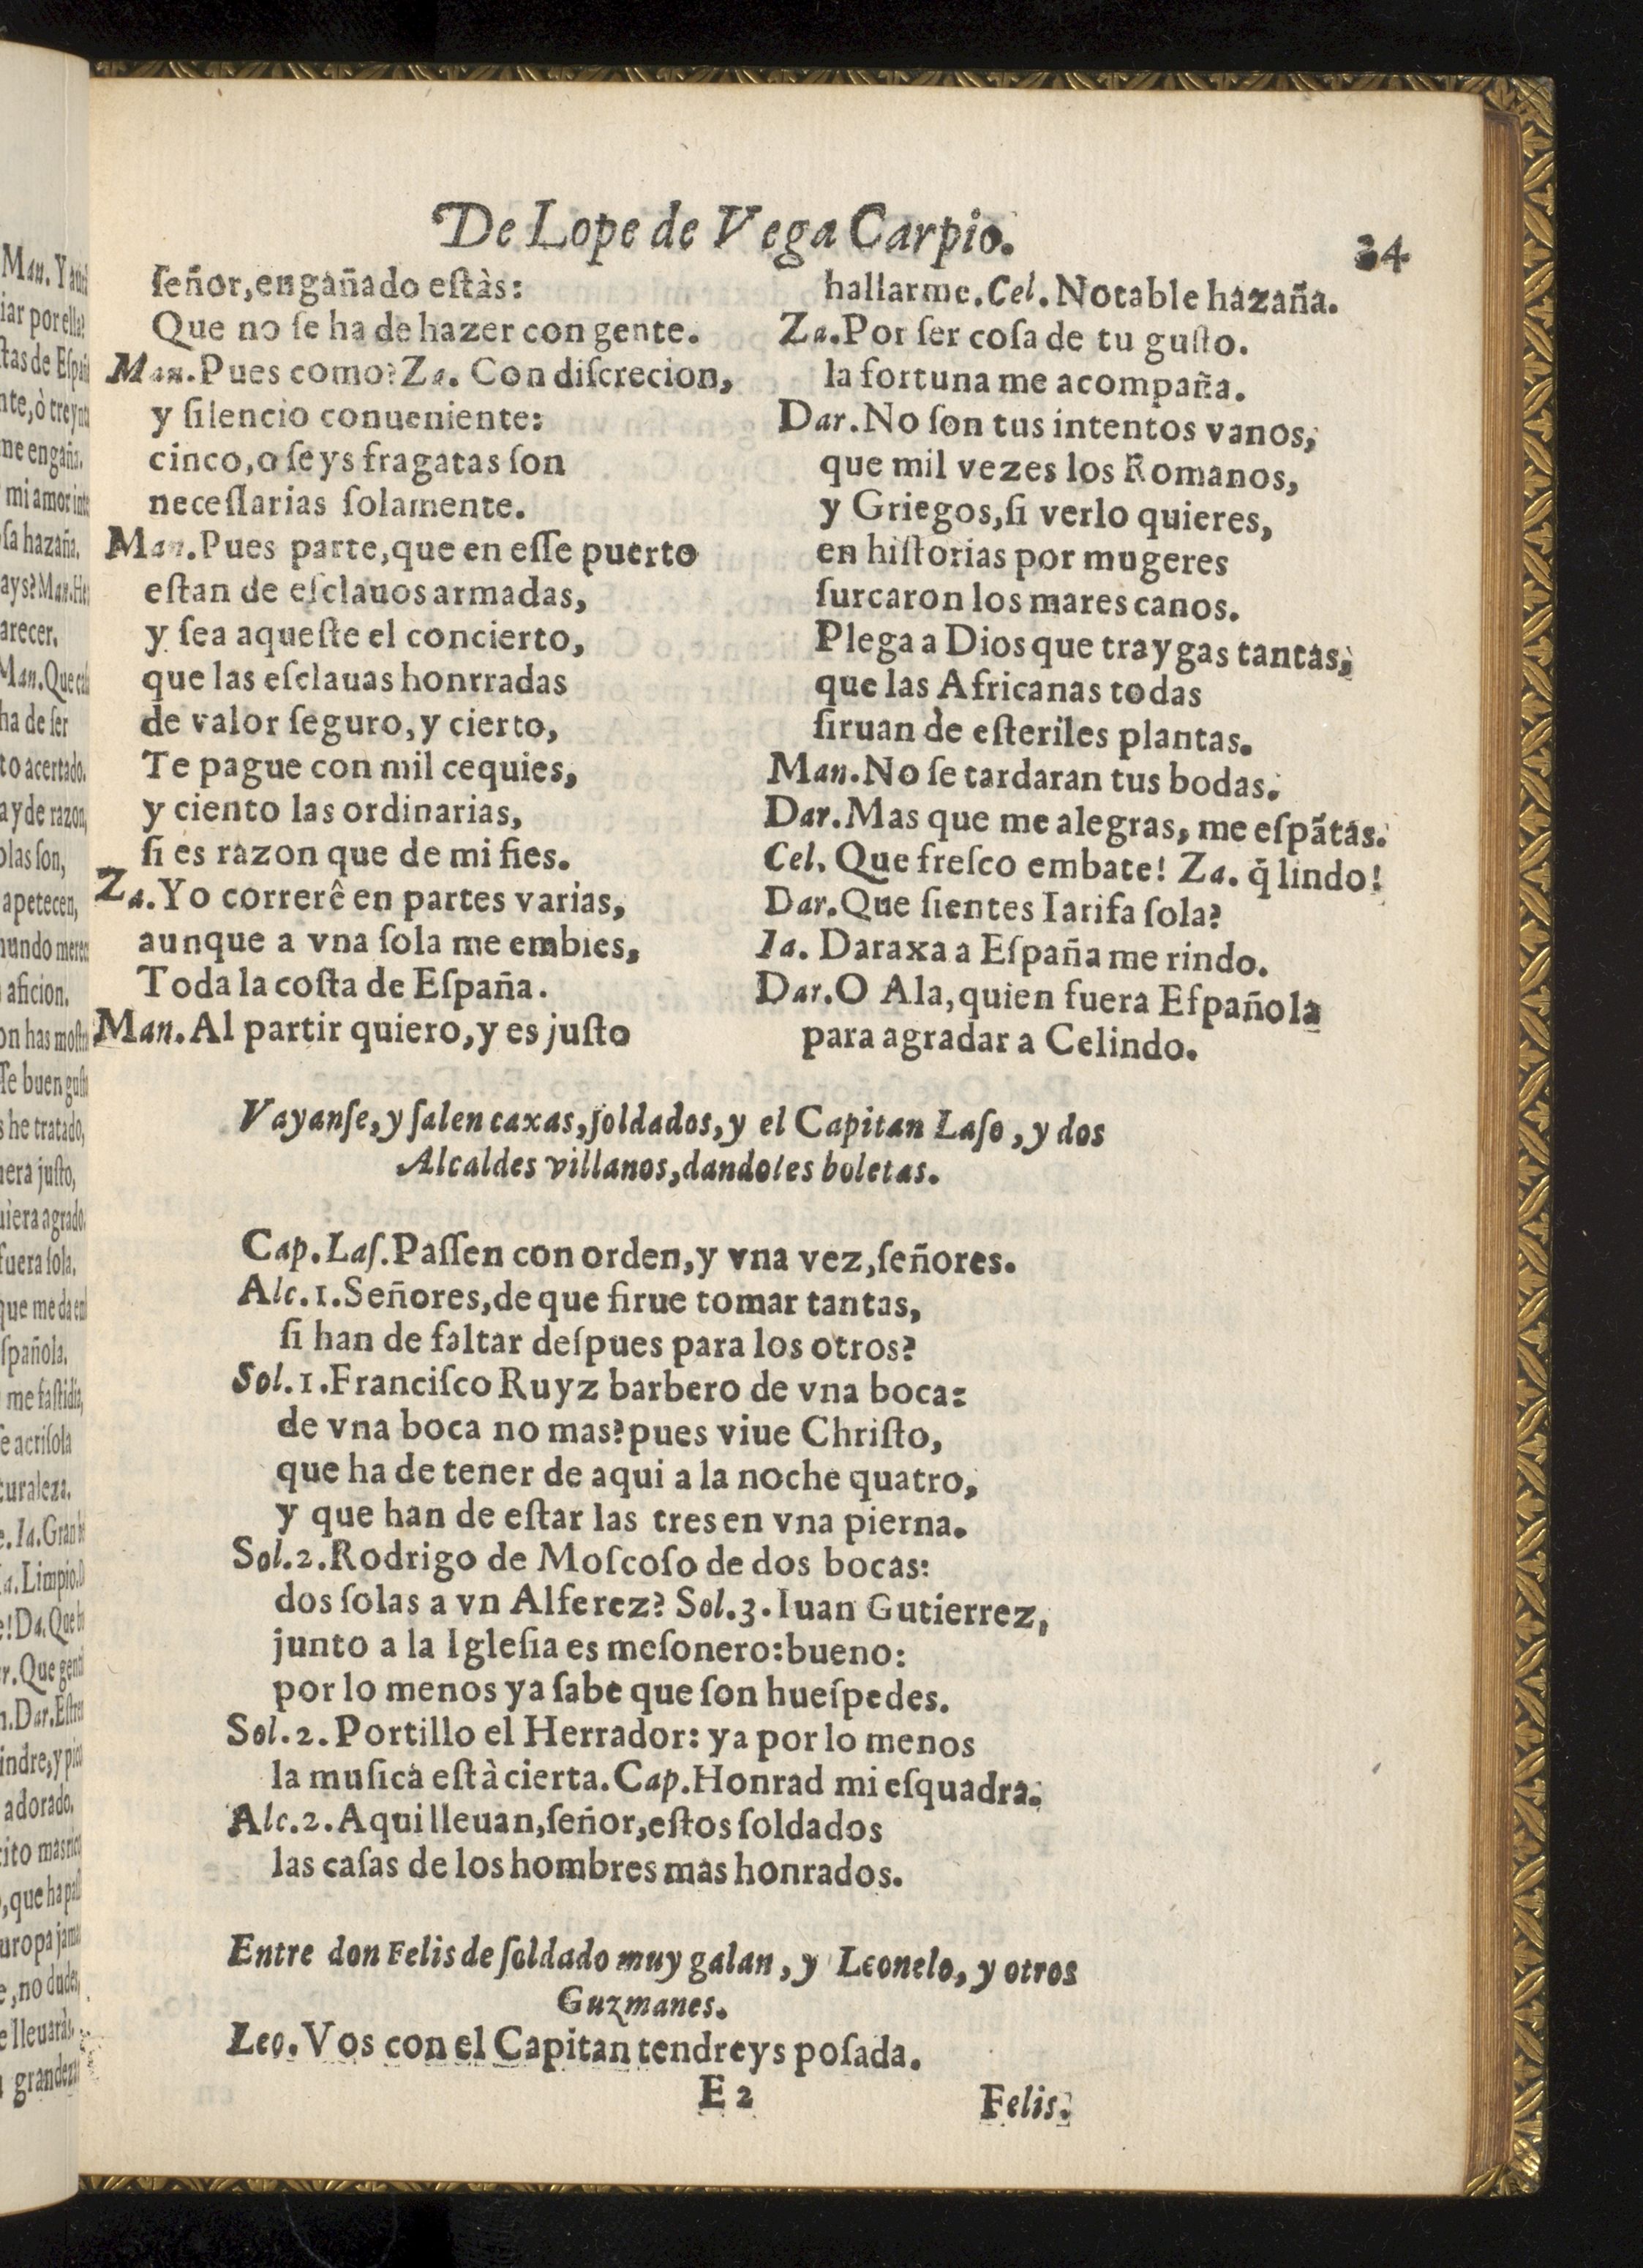 De Lope de Vega Carpio.
34
ſeñor, engañado eſtàs:
Que no ſe ha de hazer con gente.
Man. Pues como? Za. Con diſcrecion,
y ſilencio conueniente:
cinco, o ſeys fragatas ſon
neceſſarias ſolamente.
Man. Pues parte, que en eſſe puerto
eſtan de eſclauos armadas,
y ſea aqueſte el concierto,
que las eſclauas honrradas
de valor ſeguro, y cierto,
Te pague con mil cequies,
y ciento las ordinarias,
ſi es razon que de mi fies.
Za. Yo correrê en partes varias,
aunque a vna ſola me embies,
Toda la coſta de Eſpaña.
Man. Al partir quiero, y es juſto
hallarme. Cel. Notable hazaña.
Za. Por ſer coſa de tu guſto.
la fortuna me acompaña.
Dar. No ſon tus intentos vanos,
que mil vezes los Romanos,
y Griegos, ſi verlo quieres,
en hiſtorias por mugeres
ſurcaron los mares canos.
Plega a Dios que traygas tantas,
que las Africanas todas
ſiruan de eſteriles plantas.
Man. No ſe tardaran tus bodas.
Dar. Mas que me alegras, me eſpãtas.
Cel. Que freſco embate! Za. q̃ lindo!
Dar. Que ſientes Iarifa ſola?
Ia. Daraxa a Eſpaña me rindo.
Dar. O Ala, quien fuera Eſpañola
para agradar a Celindo.
Vayanſe, y ſalen caxas, ſoldados, y el Capitan Laſo, y dos
Alcaldes villanos, dandoles boletas.
Cap. Laſ. Paſſen con orden, y vna vez, ſeñores.
Alc. 1. Señores, de que ſirue tomar tantas,
ſi han de faltar deſpues para los otros?
Sol. 1. Franciſco Ruyz barbero de vna boca:
de vna boca no mas? pues viue Chriſto,
que ha de tener de aqui a la noche quatro,
y que han de eſtar las tres en vna pierna.
Sol. 2. Rodrigo de Moſcoſo de dos bocas:
dos ſolas a vn Alferez? Sol. 3. Iuan Gutierrez,
junto a la Igleſia es meſonero: bueno:
por lo menos ya ſabe que ſon hueſpedes.
Sol. 2. Portillo el Herrador: ya por lo menos
la muſica eſtà cierta. Cap. Honrad mi eſquadra.
Alc. 2. Aqui lleuan, ſeñor, eſtos ſoldados
las caſas de los hombres mas honrados.
Entre don Felis de ſoldado muy galan, y Leonelo, y otros
Guzmanes.
Leo. Vos con el Capitan tendreys poſada.
E 2
Felis.